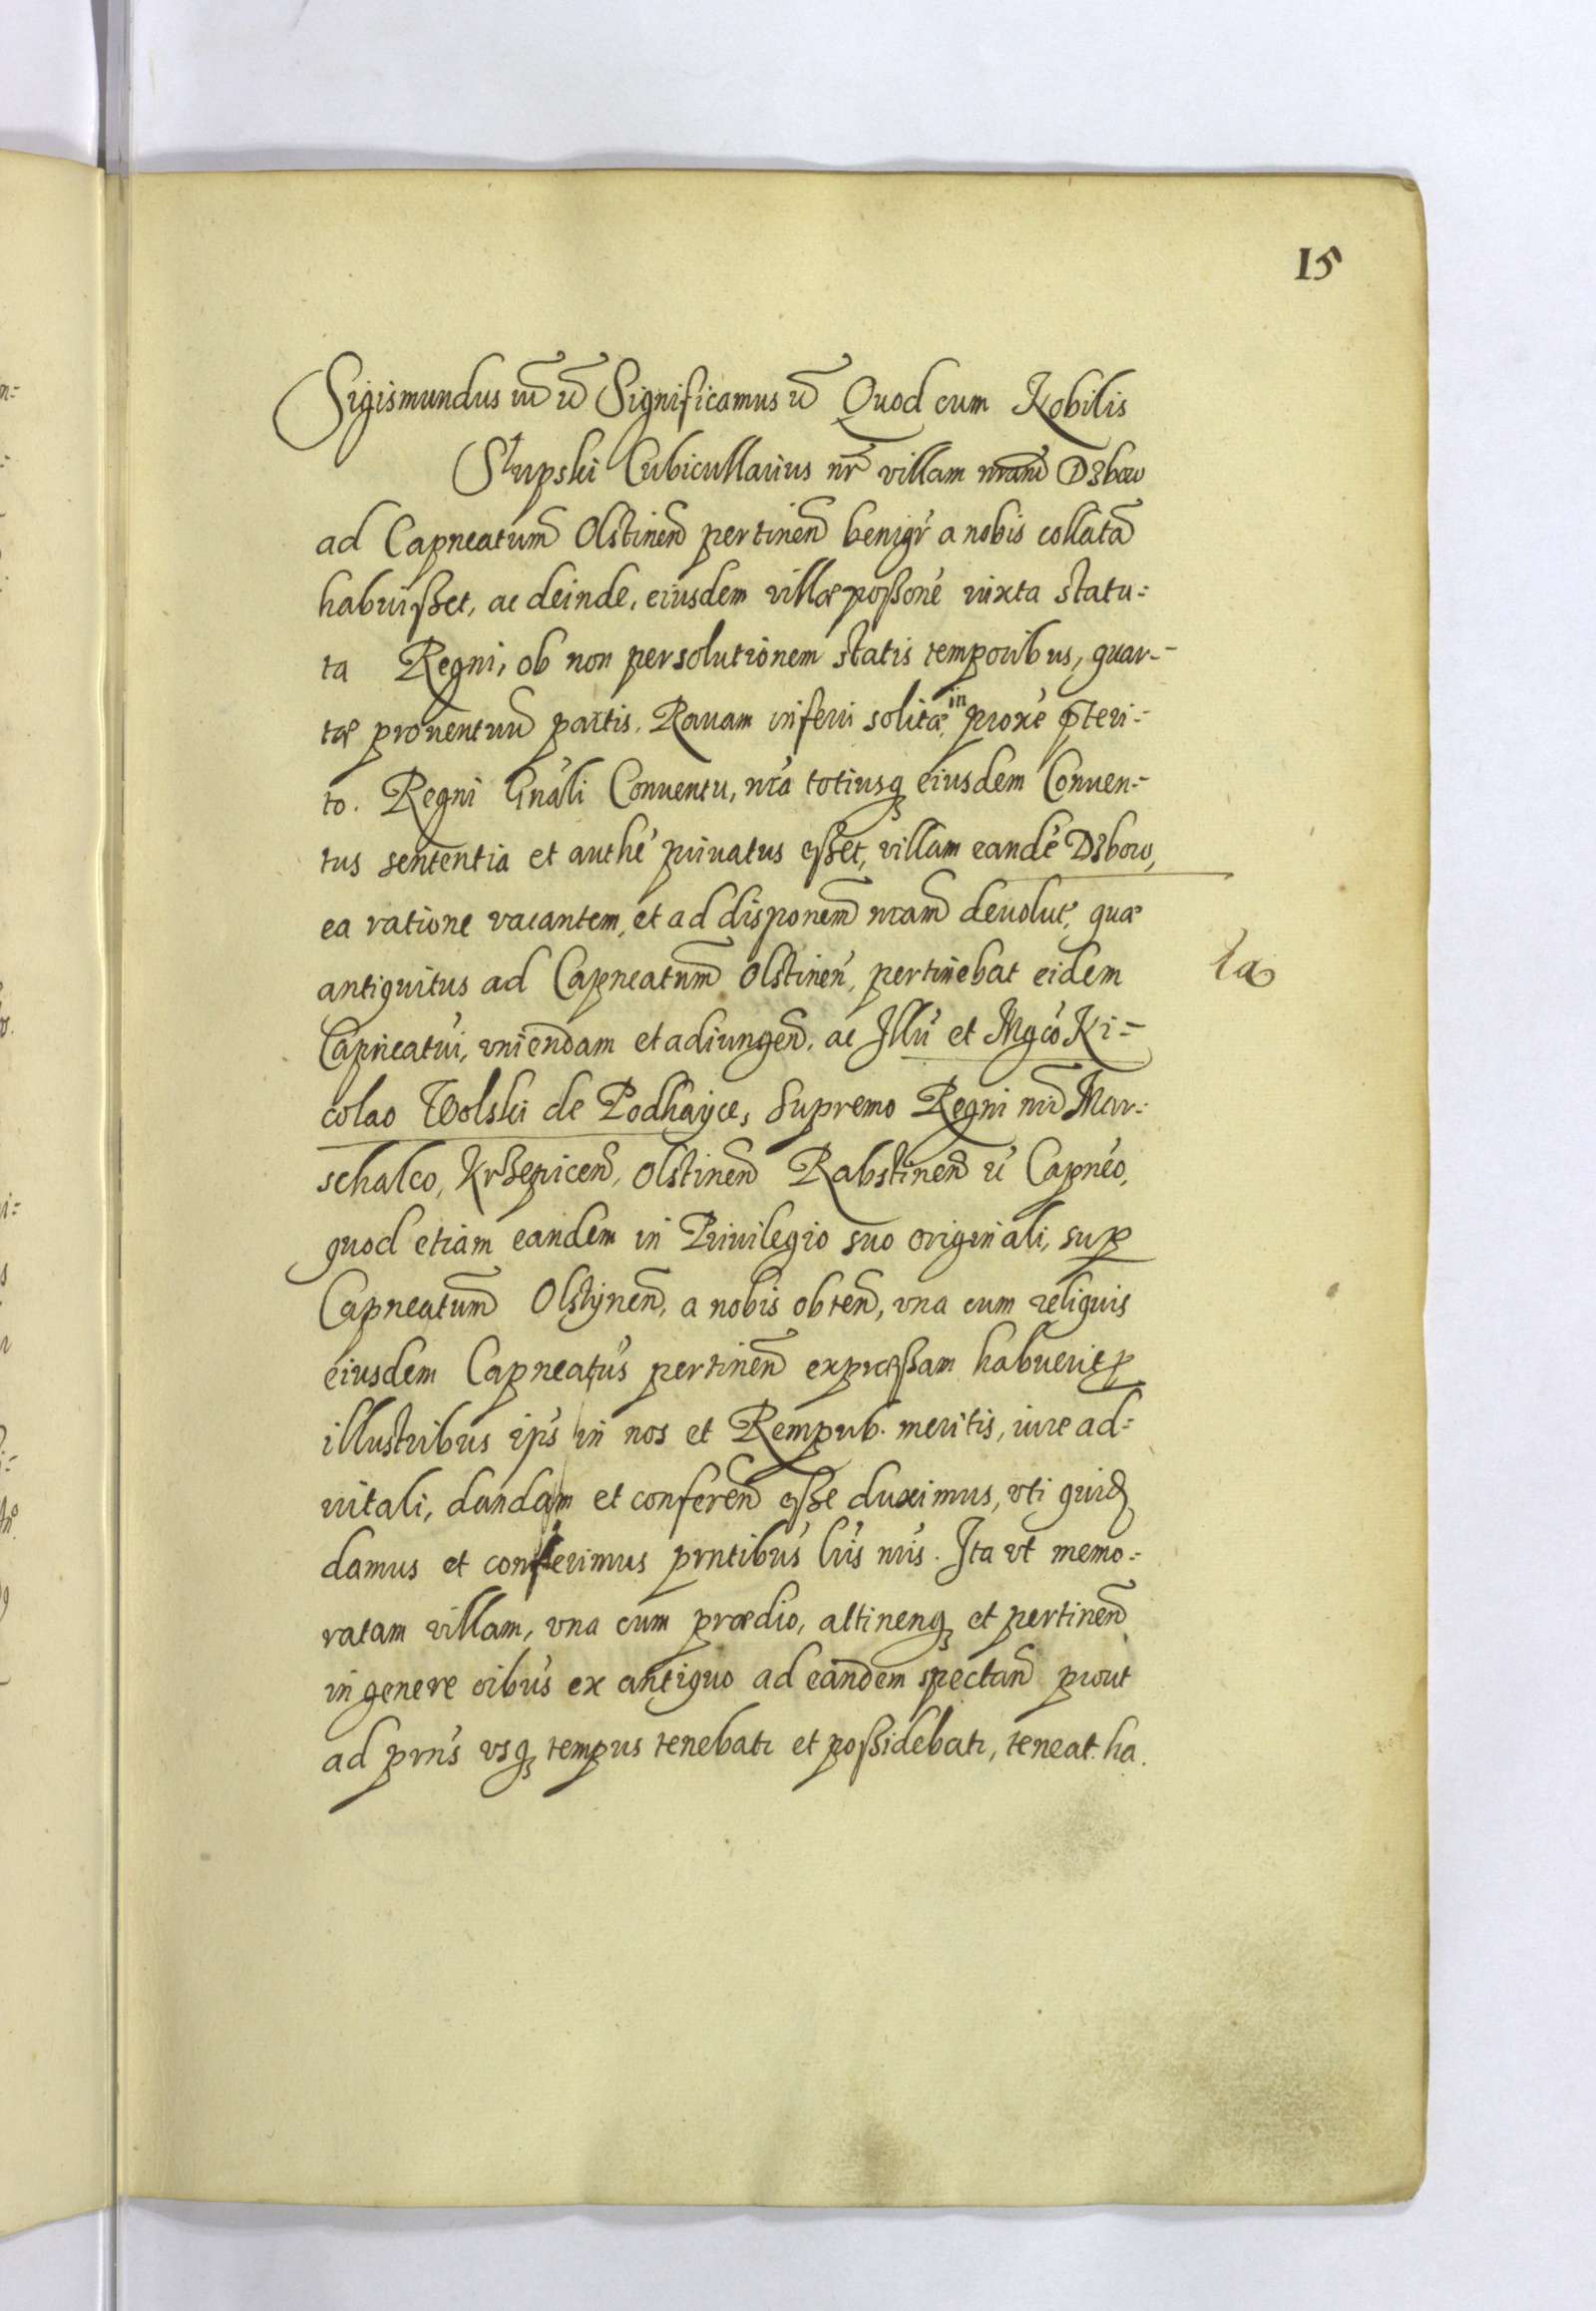 15
Sigismundus iii etc̃ Significamus etc̃ Quod cum Nobilis
Słupski Cubicullarius nr̃ villam nram̃ Dzbow
ad Capneatum̃ Olstinen̄ pertinen̄ benigř a nobis collatã
habuißet, ac deinde, eiusdem villæ poßoné iuxta statu=
ta Regni, ob non persolutionem statis temporibus, quar=
tæ prouentuũ partis, Rauam inferri solitæ, in proxé p̱teri=
to. Regni Gnáli Conuentu, nrá totiusq̧ eiusdem Conuen=
tus sententia et authé priuatus eßet, villam eandé Dzbow,
ea ratione vacantem, et ad disponem̃ nram̃ deuolut, quæ
antiquitus ad Capneatum̃ Olstinen̄, pertinebat eidem
ta
Capneatúi, vniendam et adiungen̄. ac Illú et Mgcó Ni=
colao Wolski de Podhayce, Supremo Regni nrĩ Mar=
schalco, Krzepicen̄, Olstinen̄ Rabstinen̄ etć Capnéo,
quod etiam eandem in Priuilegio suo originali, sup̱
Capneatum̃ Olstÿnen̄, a nobis obten̄, vna cum reliquis
eiusdem Capneatús pertinen̄ expræßam habuerit, p̱
illustribus ipś in nos et Rempub. meritis, iure ad=
uitali, dandam et conferen̄ eße duximus, vti quid
damus et conferimus prntibús lrís nrís. Ita vt memo=
ratam villam, vna cum prædio, attinenq̧ et pertinen̄
in genere oibús ex antiquo ad eandem spectan̄ prout
ad prńs vsq̧ tempus tenebatr et poßidebatr, teneat. ha.